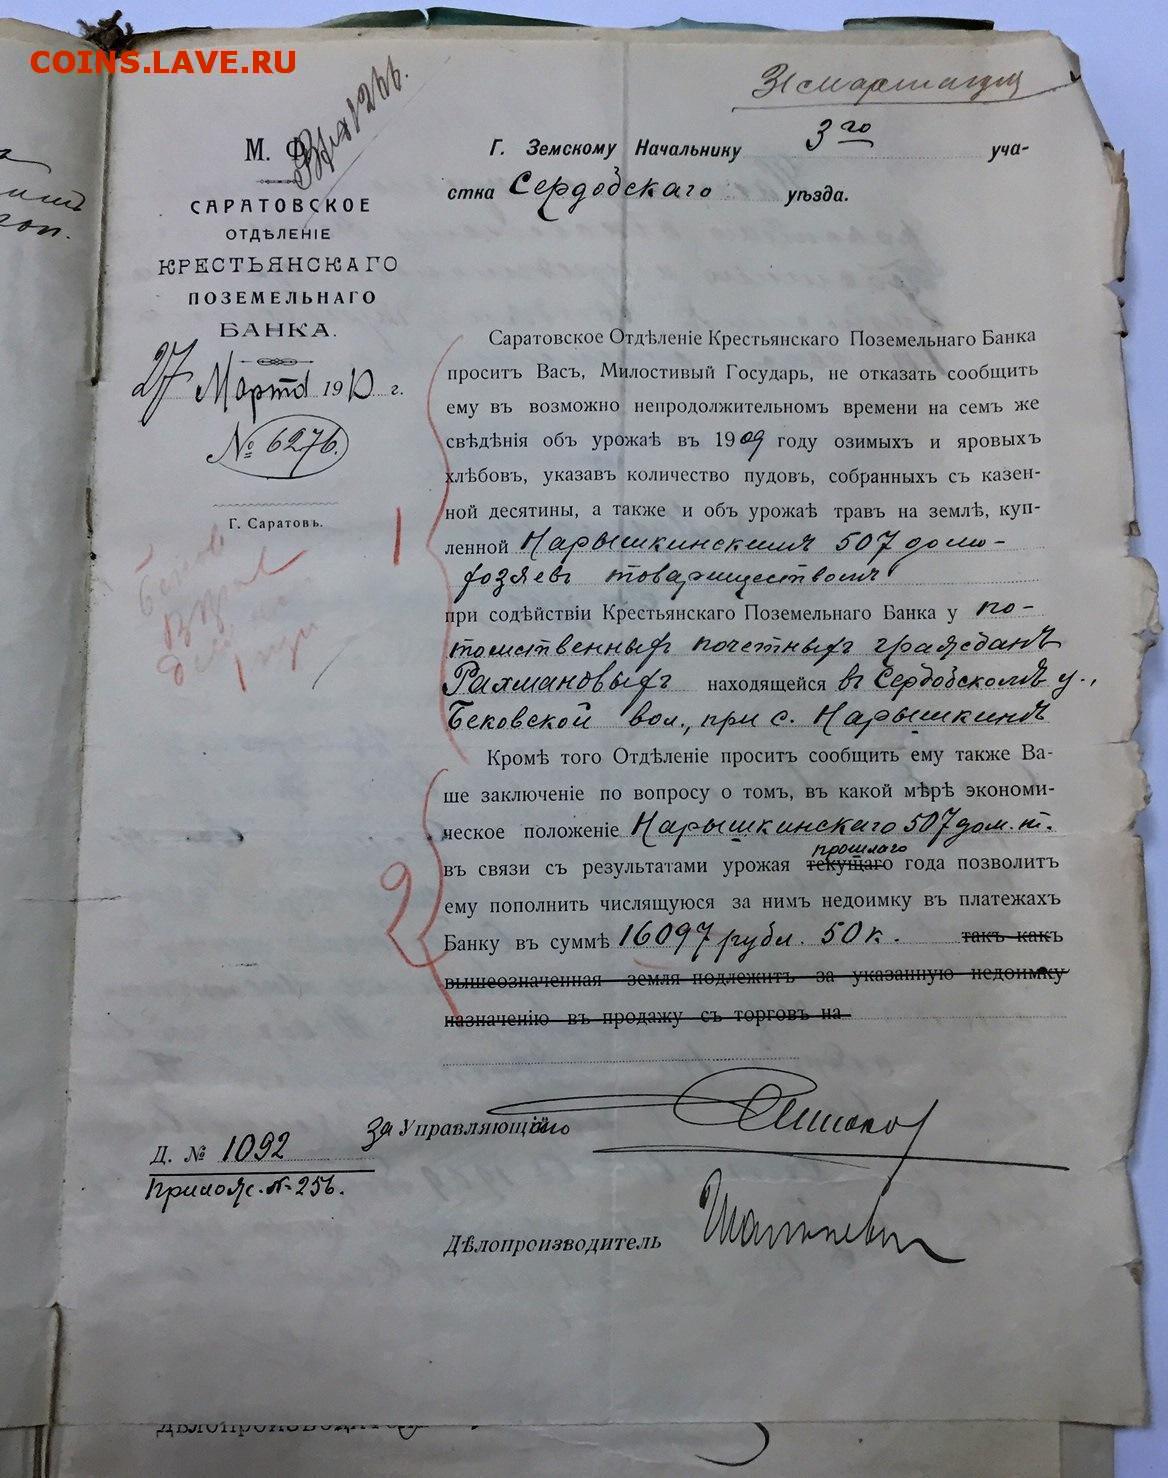 COINS.LAVE.RU
31 марта 1910
М. Ф.
САРАТОВСКОЕ
ОТДѢЛЕНІЕ
КРЕСТЬЯНСКАГО
ПОЗЕМЕЛЬНАГО
БАНКА.
27 Марта 1910 г.
№ 6276.
Г. Саратовъ.
Г. Земскому Начальнику 3го уча-
стка Сердобскаго уѣзда.
Саратовское Отдѣленіе Крестьянскаго Поземельнаго Банка
проситъ Васъ, Милостивый Государь, не отказать сообщить
ему въ возможно непродолжительномъ времени на семъ же
свѣдѣнія объ урожаѣ въ 1909 году озимыхъ и яровыхъ
хлѣбовъ, указавъ количество пудовъ, собранныхъ съ казен-
ной десятины, а также и объ урожаѣ травъ на землѣ, куп-
1
ленной Нарышкинскимъ 507 домо-
хозяевъ товариществомъ
при содѣйствіи Крестьянскаго Поземельнаго Банка у по-
томственныхъ почетныхъ гражданъ
Рахмановыхъ находящейся въ Сердобскомъ у.,
Бековской вол., при с. Нарышкинѣ
Кромѣ того Отдѣленіе проситъ сообщить ему также Ва-
ше заключеніе по вопросу о томъ, въ какой мѣрѣ экономи-
ческое положеніе Нарышкинскаго 507 дом. т.
прошлаго
въ связи съ результатами урожая текущаго года позволитъ
2
ему пополнить числящуюся за нимъ недоимку въ платежахъ
Банку въ суммѣ 16097 рубл. 50 к. такъ какъ
вышеозначенная земля подлежитъ за указанную недоимку
назначенію въ продажу съ торговъ на
За Управляющаго
Д. № 1092
Прилож. № 256.
Дѣлопроизводитель
Дѣлопроизводитель